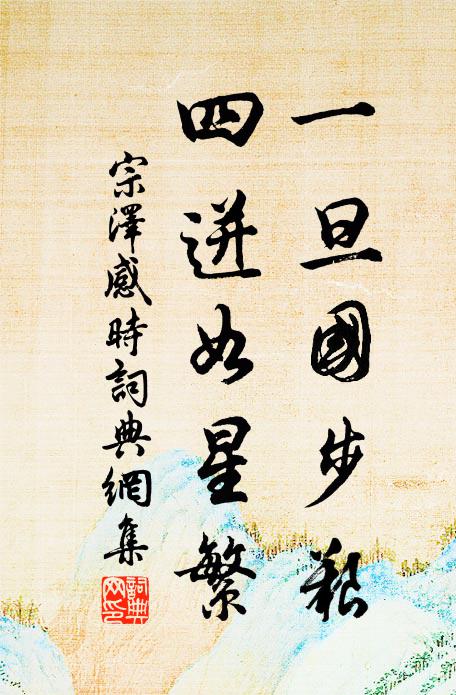 一旦國步艱
四迸如星繁
宗澤感時詞典網集
詞典
网印